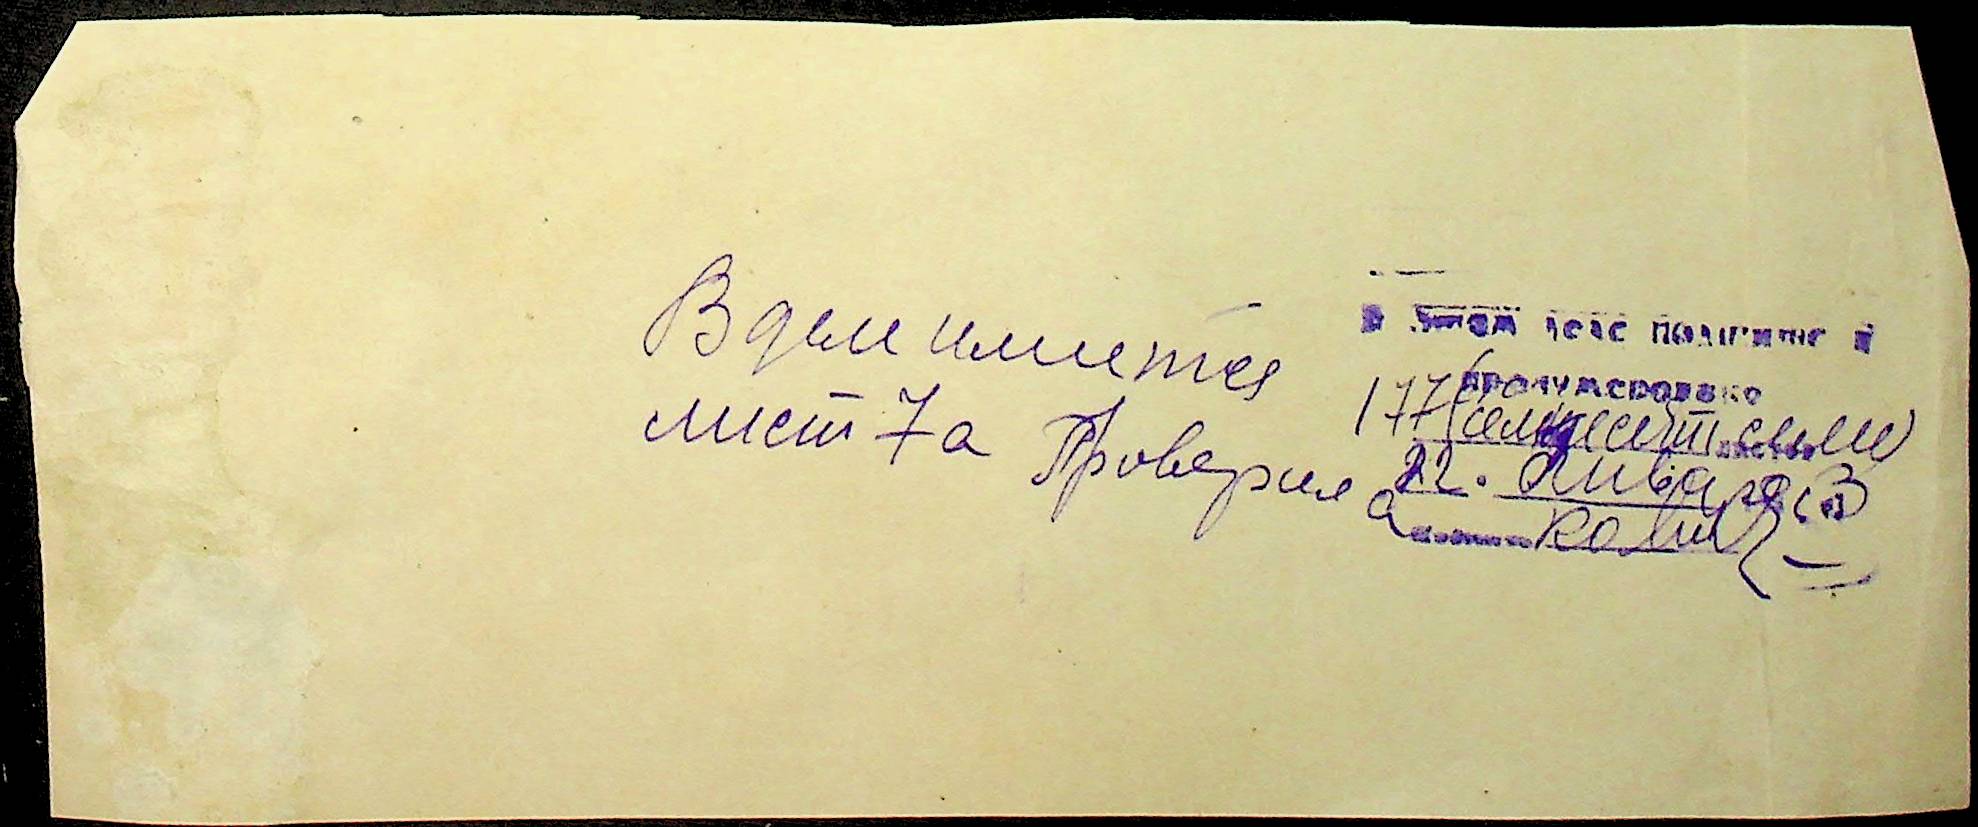 В деле имеется
лист 7а Проверила
В этом деле подшито и
пронумеровано
177 (семьдесят семь)
листов
22. января